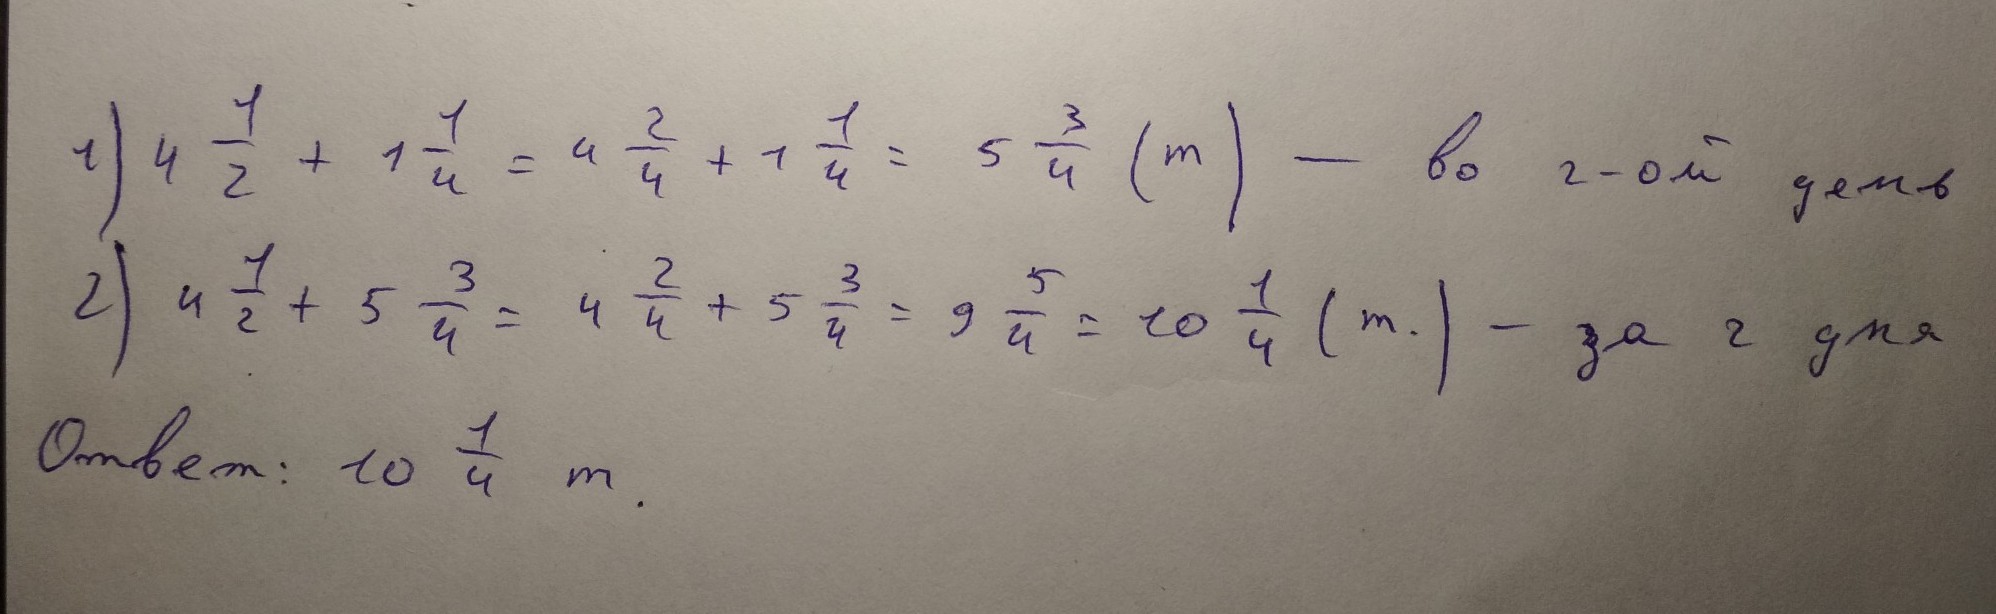 1) 4 1/2 + 1 1/4 = 4 2/4 + 1 1/4 = 5 3/4 (т) — во 2-ой день
2) 4 1/2 + 5 3/4 = 4 2/4 + 5 3/4 = 9 5/4 = 10 1/4 (т.) — за 2 дня
Ответ: 10 1/4 т.